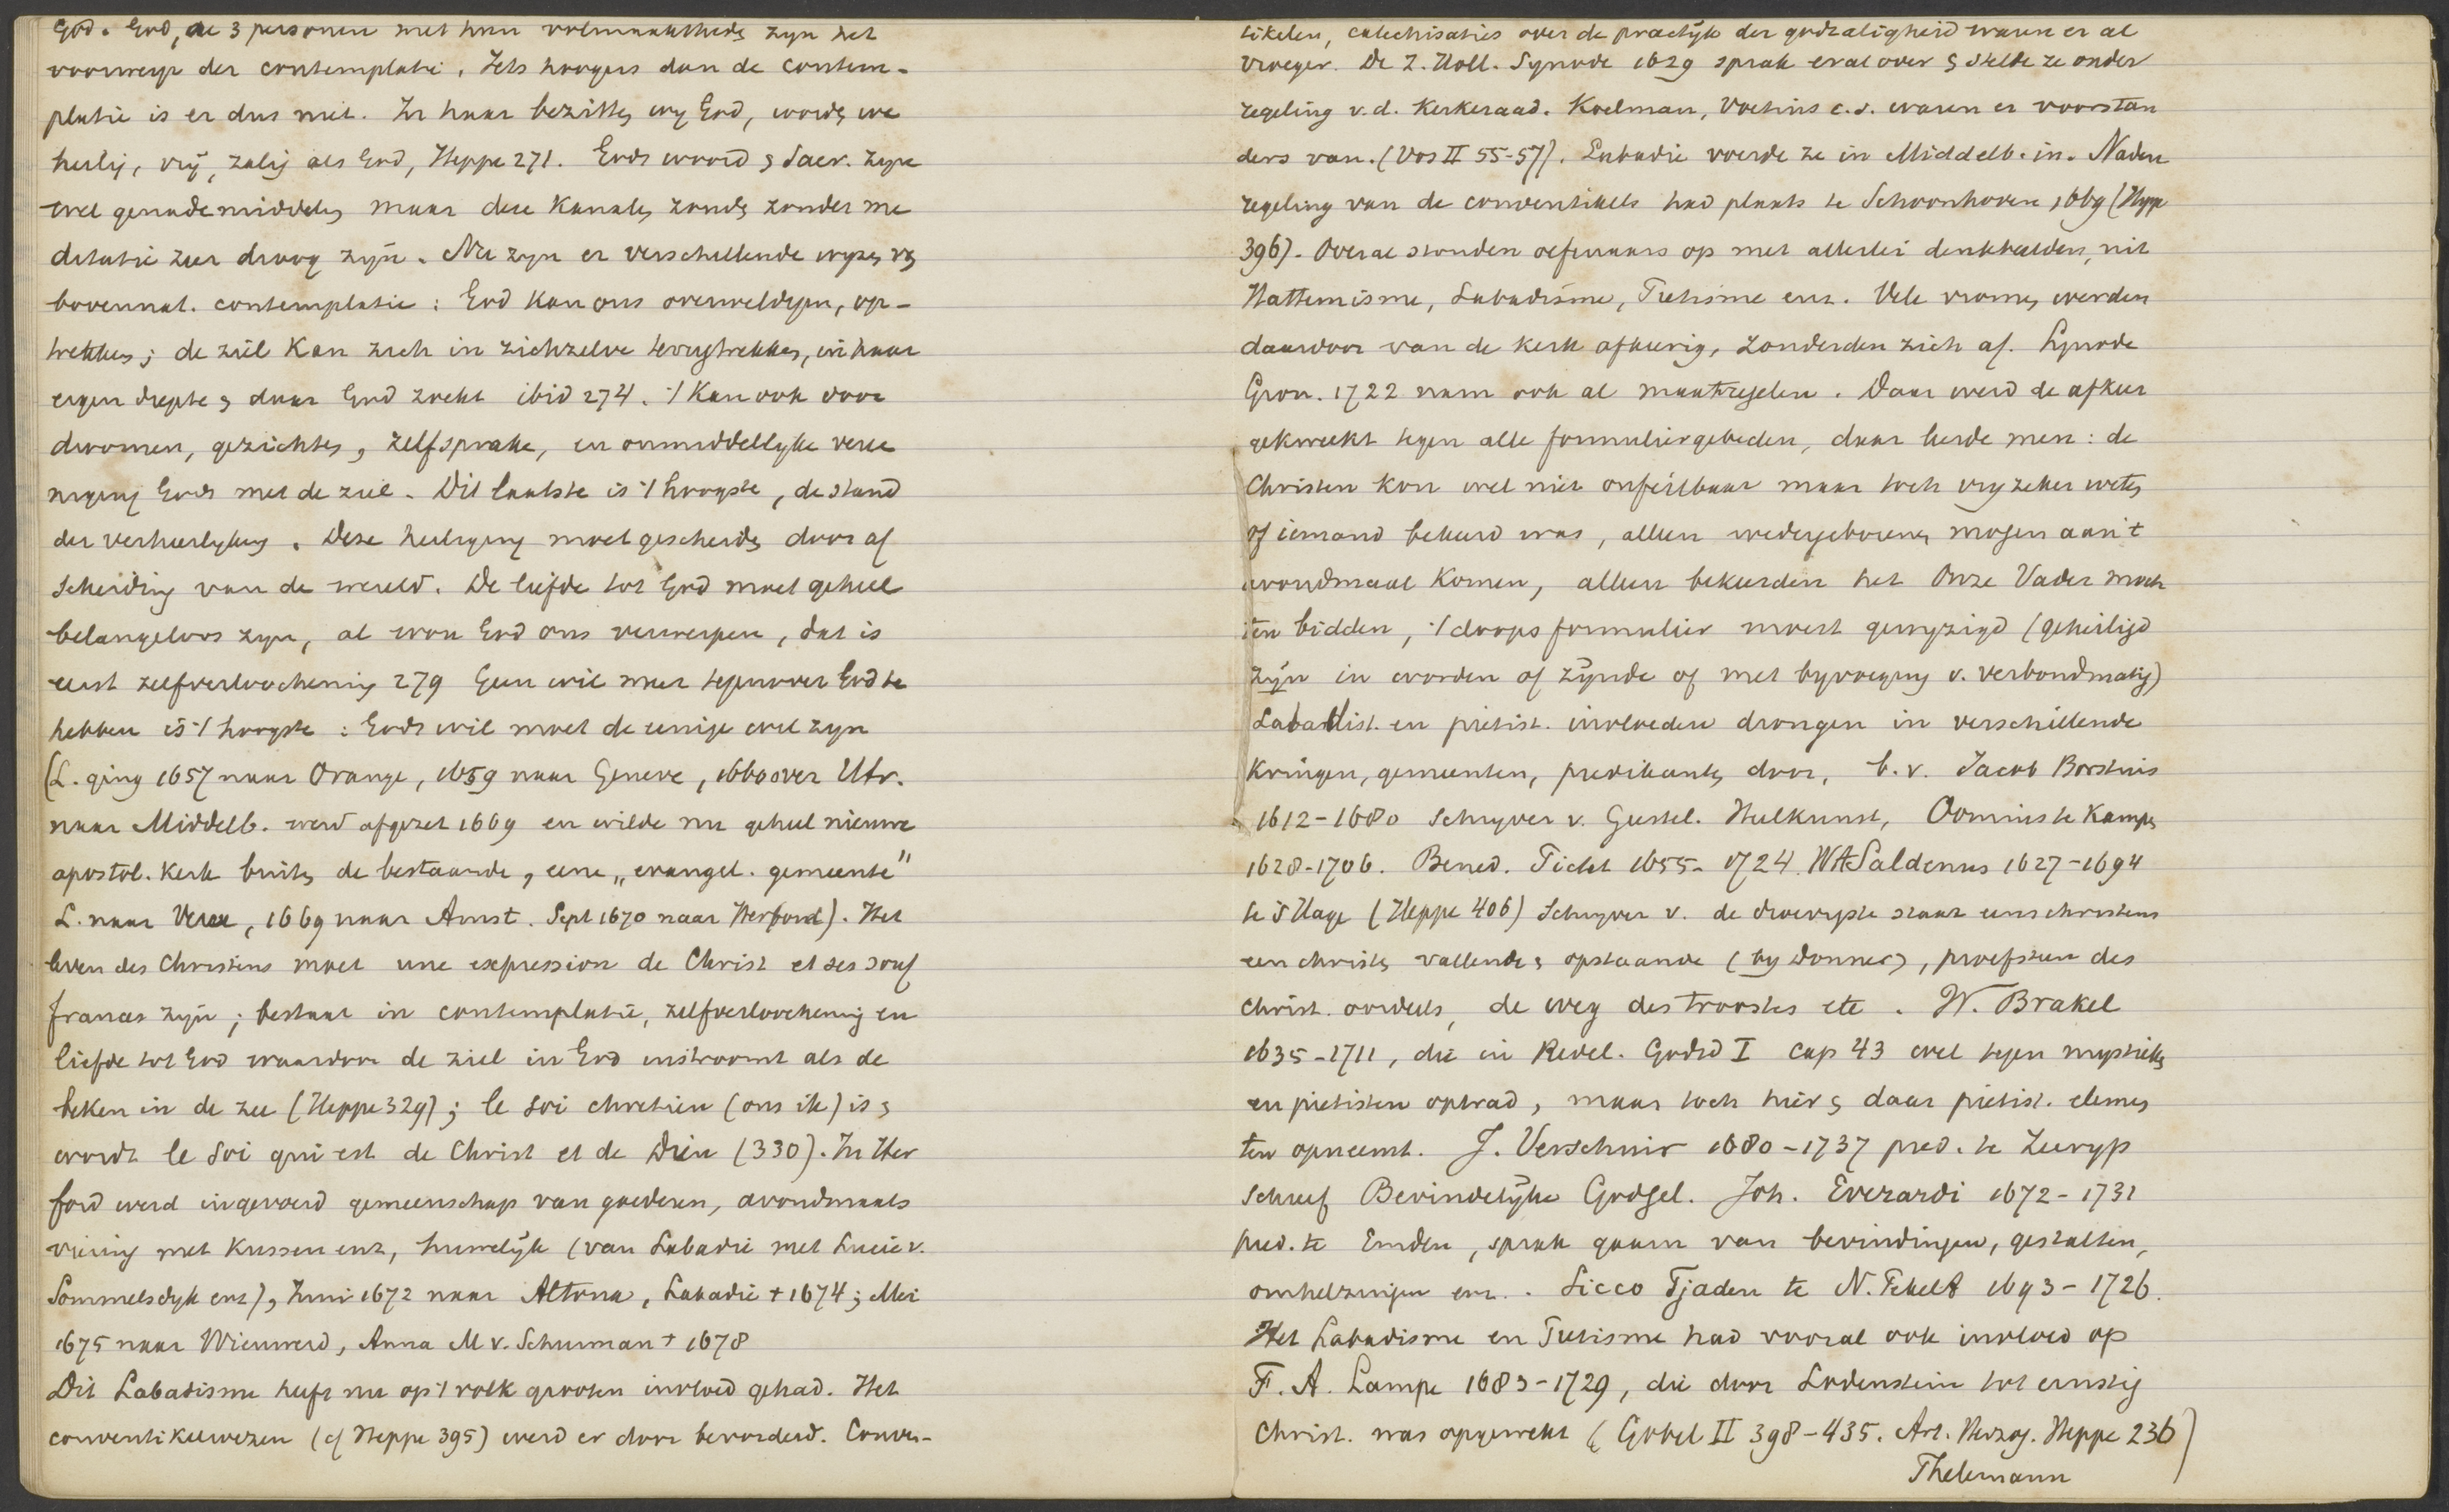 God. God, de 3 personen met hun volmaakthedn zijn het
voorwerp der contemplatie. Iets hoogers dan de contem-
platie is er dus niet. In haar bezitten wij God, wordn we
heilig, vrij, zalig als God, Heppe 271. Gods woord & Sacr. zijn
wel genademiddeln maar deze kanaln zoudn zonder me
ditatie zeer droog zijn. Nu zijn er verschillende wijzn v
bovennat. contemplatie: God kan ons overweldigen, op-
trekken; de ziel kan zich in zichzelve terugtrekken, in haar
eigen diepte & daar God zoekt ibid 274. 't Kan ook door
droomen, gezichten, zelfsprake, en onmiddellijke vere
niging Gods met de ziel. Dit laatste is 't hoogste, de stand
der verheerlijking. Deze heiliging moet geschiedn door af
scheiding van de wereld. De liefde tot God moet geheel
belangeloos zijn, al wou God ons verwerpen, dat is
eerst zelfverloochening 279 Geen wil meer tegenover God te
hebben is 't hoogste: Gods wil moet de eenige wil zijn
(L. ging 1657 naar Orange, 1659 naar Geneve, 1666 over Utr.
naar Middelb. werd afgezet 1669 en wilde nu geheel nieuwe
apostol. kerk buiten de bestaande, eene „evangel. gemeente"
L. naar Veere, 1669 naar Amst. Sept 1670 naar Herford). Het
leven des Christens moet une expression de Christ et ses souf
frances zijn; bestaat in contemplatie, zelfverloochening en
liefde tot God waardoor de ziel in God instroomt als de
beken in de zee (Heppe 329); le soi chretien (ons ik) is &
wordt le soi qui est de Christ et de Dieu (330). In Her
ford werd ingevoerd gemeenschap van goederen, avondmaals
viering met kussen enz, huwelijk (van Labadie met Lucie v.
Sommelsdyk enz), Juni 1672 naar Altona, Labadie † 1674; Mei
1675 naar Wieuwerd, Anna M v. Schurman † 1678
Dit Labadisme heeft nu op 't volk grooten invloed gehad. Het
conventikelwezen (cf Heppe 395) werd er door bevorderd. Conven-
tikelen, catechisaties over de practijk der godzaligheid waren er al
vroeger. De Z. Holl. Synode 1629 sprak er al over & stelde ze onder
regeling v.d. Kerkeraad. Koelman, Voetius c.s. waren er voorstan
ders van. (Vos II 55-57). Labadie voerde ze in Middelb. in. Nadere
regeling van de conventikels had plaats te Schoonhoven 1669 (Heppe
396). Overal stonden oefenaars op met allerlei denkbeelden, uit
Hattemisme, Labadisme, Pietisme enz. Vele vromen werden
daardoor van de kerk afkeerig, zonderden zich af. Synode
Gron. 1722 nam ook al maatregelen. Daar werd de afkeer
gekweekt tegen alle formuliergebeden, daar leerde men: de
Christen kon wel niet onfeilbaar maar toch vrij zeker weten
of iemand bekeerd was, alleen wedergeborenen mogen aan 't
avondmaal komen, alleen bekeerden het Onze Vader moch
ten bidden, 't doopsformulier moest gewijzigd (geheiligd
zijn in worden of zijnde of met bijvoeging v. verbondmatig)
Labadist. en pietist. invloeden drongen in verschillende
kringen, gemeenten, predikanten door, b.v. Jacob Borstius
1612-1680 schrijver v. Geestel. Heelkunst, Oominck te Kampen
1628-1706. Bened. Pictet 1655-1724. W A Saldenus 1627-1694
te 's Hage (Heppe 406) Schrijver v. de droevigste staat eens christens
een christen vallende & opstaande (bij Donner), proefsteen des
christ. oordeels, de weg des troostes etc. W. Brakel
1635-1711, die in Redel. Godsd I cap 43 wel tegen mystieken
en pietisten optrad, maar toch hier & daar pietist. elemen
ten opneemt. J. Verschuir 1680-1737 pred. te Zeerijp
schreef Bevindelijke Godgel. Joh. Everardi 1672-1731
pred. te Emden, sprak gaarn van bevindingen, gestalten,
omhelzingen enz. Sicco Tjaden te N. Pekela 1693-1726.
Het Labadisme en Pietisme had vooral ook invloed op
F. A. Lampe 1683-1729, die door Lodenstein tot ernstig
Christ. was opgewekt (Göbel II 398-435. Art. Herzog. Heppe 236)
Thelemann